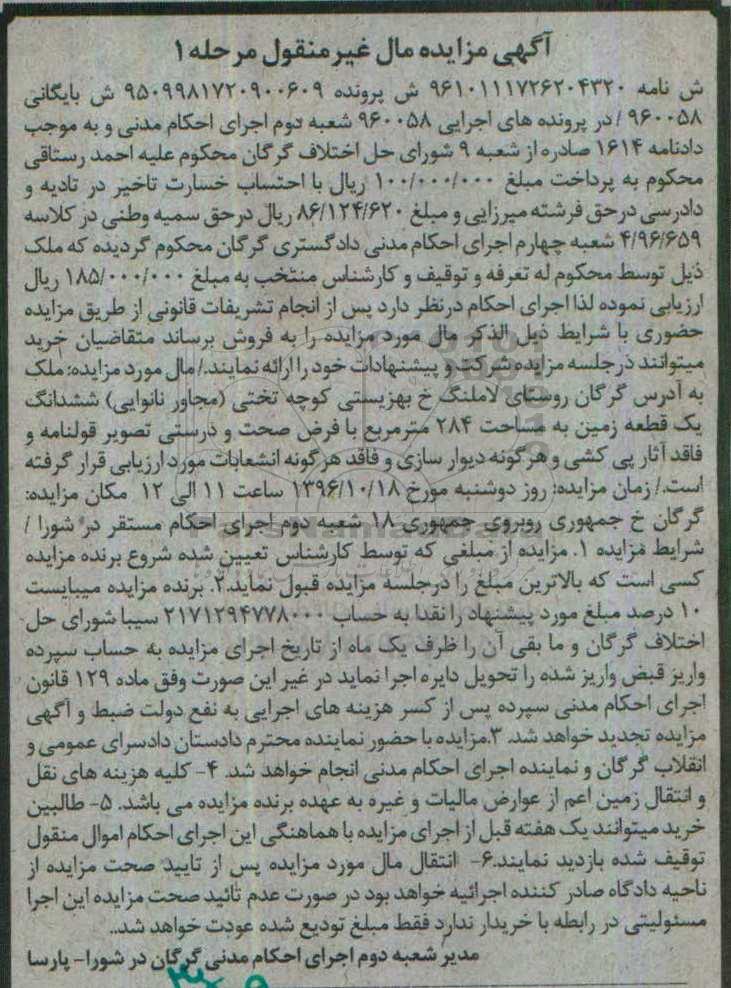 آگهی مزایده مال غیر منقول مرحله ۱
ش نامه ۹۶۱۰۱۱۱۷۲۶۲۰۴۳۲۰ ش پرونده ۹۵۰۹۹۸۱۷۲۰۹۰۰۶۰۹ ش بایگانی
۹۶۰۰۵۸ / در پرونده های اجرایی ۹۶۰۰۵۸ شعبه دوم اجرای احکام مدنی و به موجب
دادنامه ۱۶۱۴ صادره از شعبه ۹ شورای حل اختلاف گرگان محکوم علیه احمد رستاقی
محکوم به پرداخت مبلغ ۱۰۰/۰۰۰/۰۰۰ ریال با احتساب خسارت تاخیر در تادیه و
دادرسی درحق فرشته میرزایی و مبلغ ۸۶/۱۲۴/۶۲۰ ریال درحق سمیه وطنی در کلاسه
۴/۹۶/۶۵۹ شعبه چهارم اجرای احکام مدنی دادگستری گرگان محکوم گردیده که ملک
ذیل توسط محکوم له تعرفه و توقیف و کارشناس منتخب به مبلغ ۱۸۵/۰۰۰/۰۰۰ ریال
ارزیابی نموده لذا اجرای احکام درنظر دارد پس از انجام تشریفات قانونی از طریق مزایده
حضوری با شرایط ذیل الذکر مال مورد مزایده را به فروش برساند متقاضیان خرید
میتوانند درجلسه مزایده شرکت و پیشنهادات خود را ارائه نمایند./ مال مورد مزایده: ملک
به آدرس گرگان روستای لاملنگ خ بهزیستی کوچه تختی (مجاور نانوایی) ششدانگ
یک قطعه زمین به مساحت ۲۸۴ مترمربع با فرض صحت و درستی تصویر قولنامه و
فاقد آثار پی کشی و هرگونه دیوار سازی و فاقد هرگونه انشعابات مورد ارزیابی قرار گرفته
است./ زمان مزایده: روز دوشنبه مورخ ۱۳۹۶/۱۰/۱۸ ساعت ۱۱ الی ۱۲ مکان مزایده:
گرگان خ جمهوری روبروی جمهوری ۱۸ شعبه دوم اجرای احکام مستقر در شورا /
شرایط مزایده ۱. مزایده از مبلغی که توسط کارشناس تعیین شده شروع برنده مزایده
کسی است که بالاترین مبلغ را درجلسه مزایده قبول نماید.۲. برنده مزایده میبایست
۱۰ درصد مبلغ مورد پیشنهاد را نقدا به حساب ۲۱۷۱۲۹۴۷۷۸۰۰۰ سیبا شورای حل
اختلاف گرگان و ما بقی آن را ظرف یک ماه از تاریخ اجرای مزایده به حساب سپرده
واریز قبض واریز شده را تحویل دایره اجرا نماید در غیر این صورت وفق ماده ۱۲۹ قانون
اجرای احکام مدنی سپرده پس از کسر هزینه های اجرایی به نفع دولت ضبط و آگهی
مزایده تجدید خواهد شد. ۳.مزایده با حضور نماینده محترم دادستان دادسرای عمومی و
انقلاب گرگان و نماینده اجرای احکام مدنی انجام خواهد شد. ۴- کلیه هزینه های نقل
و انتقال زمین اعم از عوارض مالیات و غیره به عهده برنده مزایده می باشد. ۵- طالبین
خرید میتوانند یک هفته قبل از اجرای مزایده با هماهنگی این اجرای احکام اموال منقول
توقیف شده بازدید نمایند.۶- انتقال مال مورد مزایده پس از تایید صحت مزایده از
ناحیه دادگاه صادر کننده اجرائیه خواهد بود در صورت عدم تائید صحت مزایده این اجرا
مسئولیتی در رابطه با خریدار ندارد فقط مبلغ تودیع شده عودت خواهد شد..
مدیر شعبه دوم اجرای احکام مدنی گرگان در شورا- پارسا